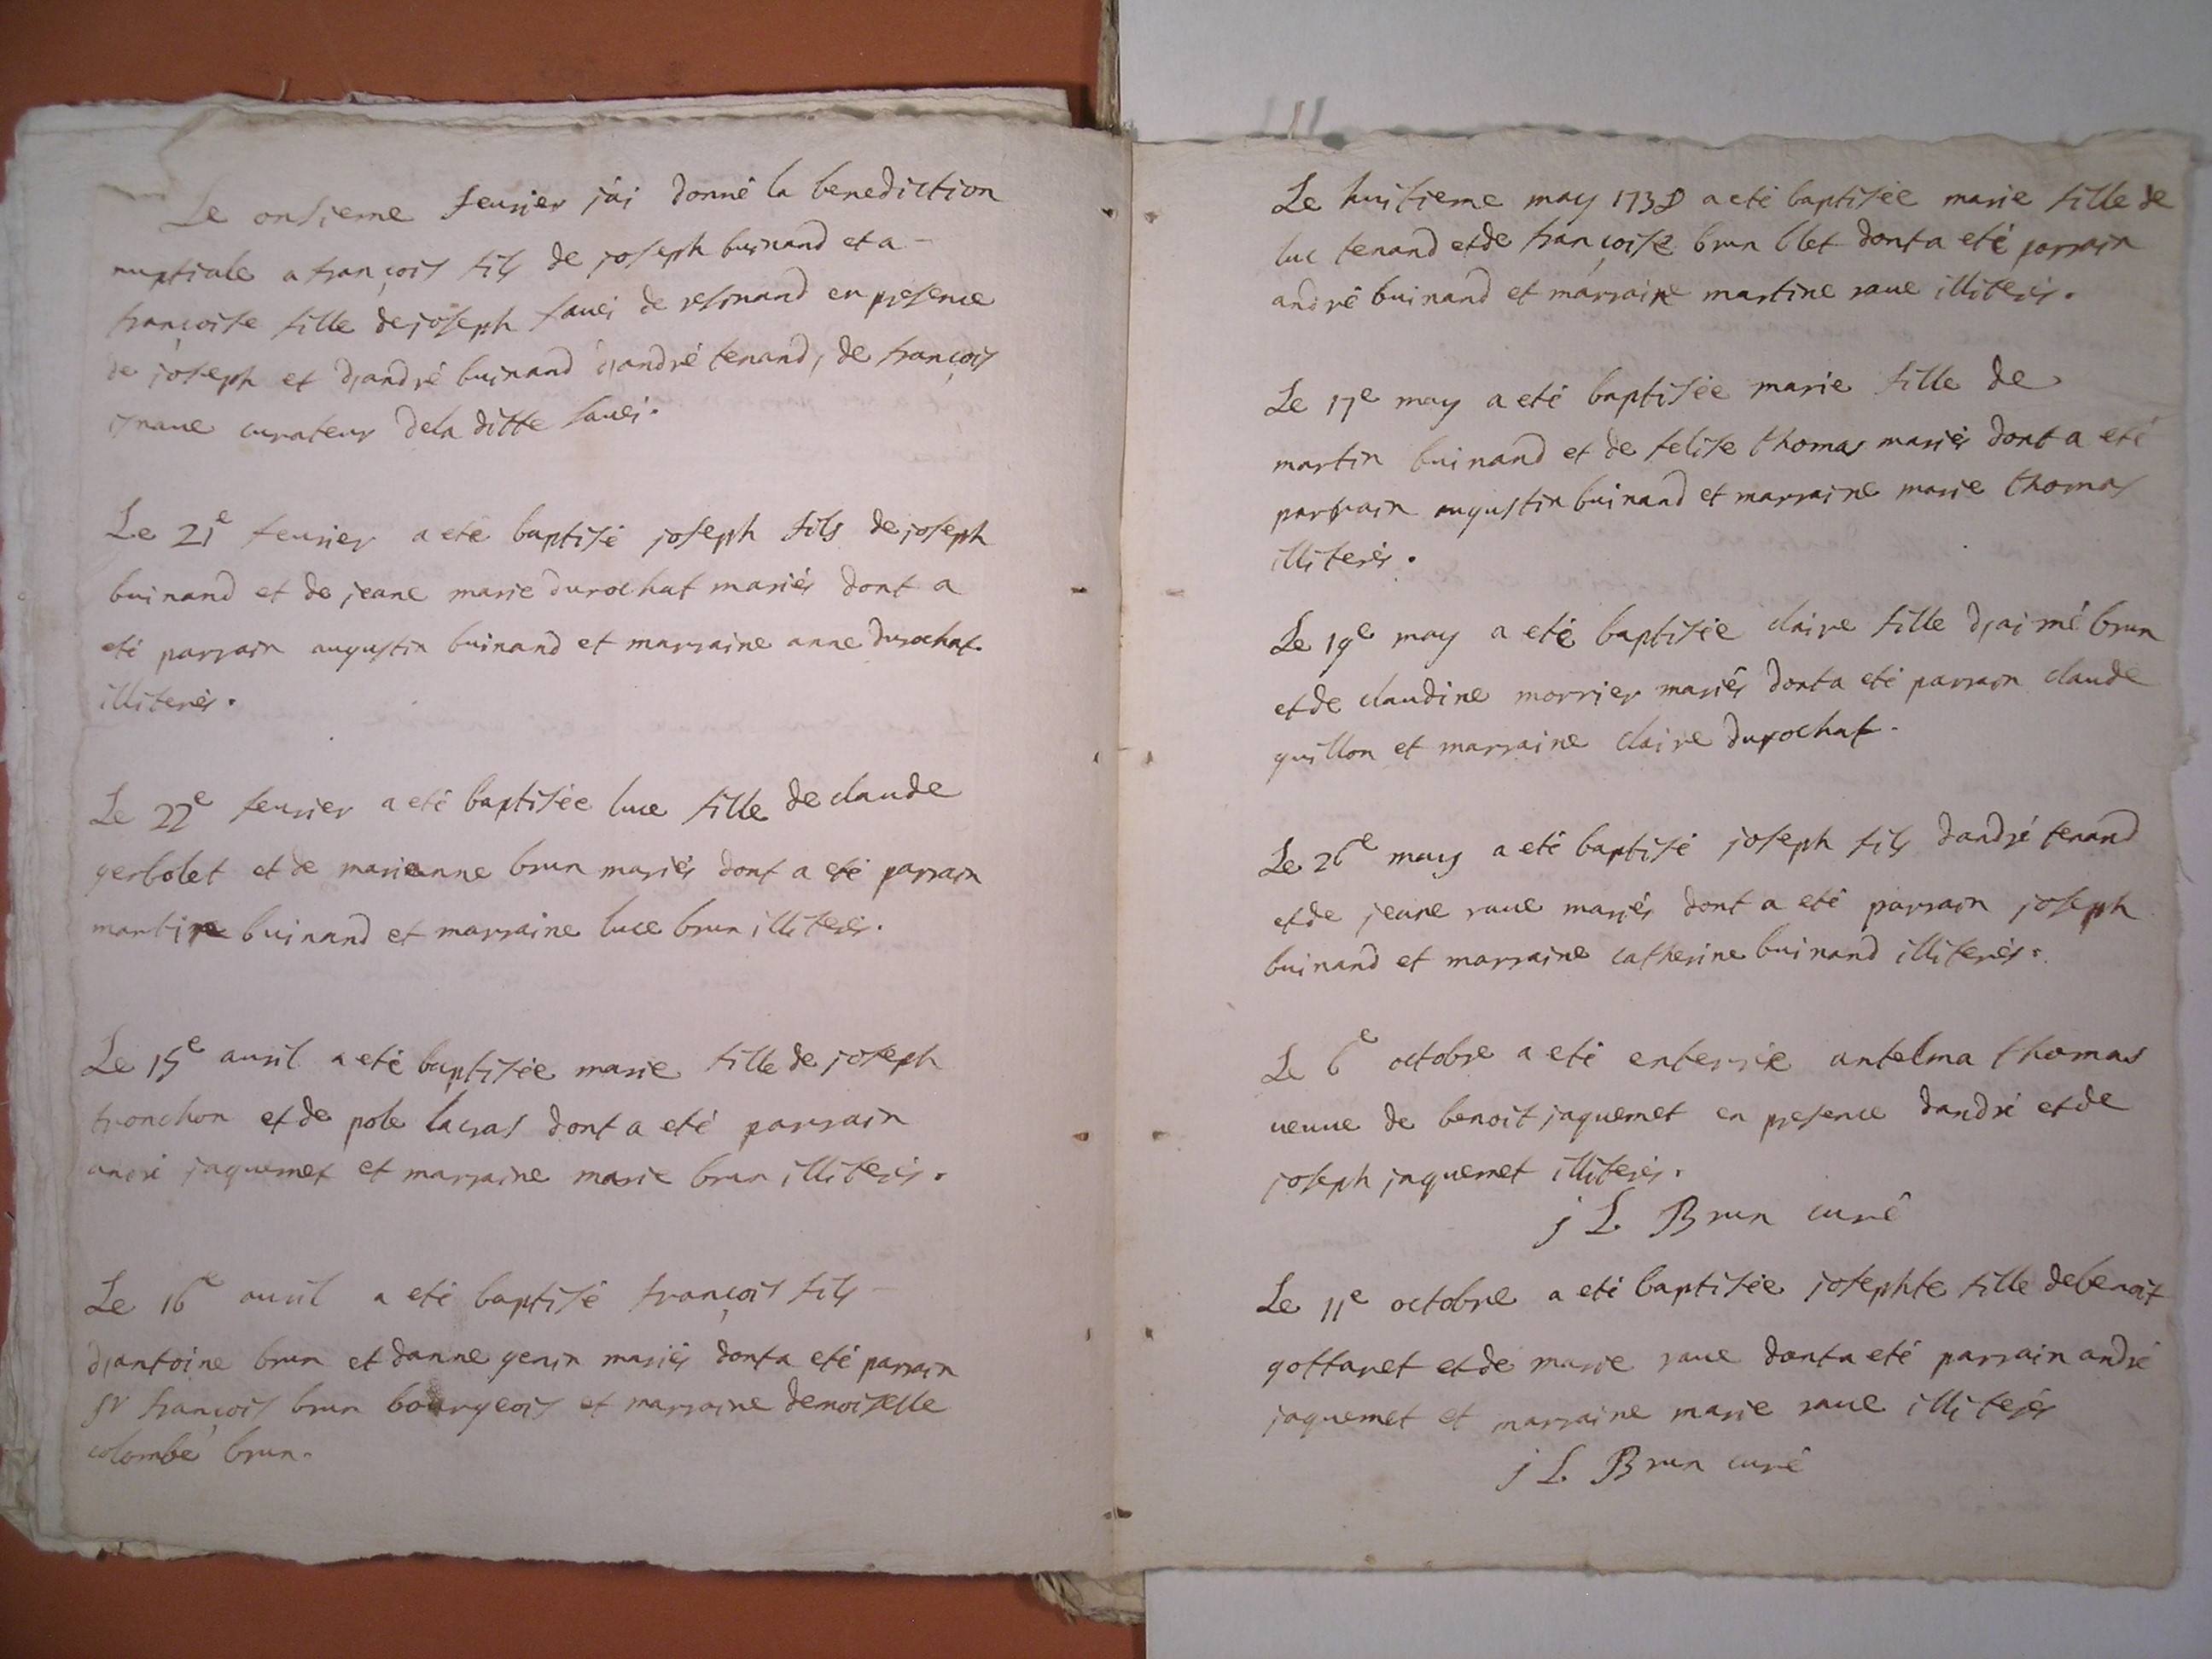 Le onsieme feurier j'ai donné la benediction
nuptiale a françois fils de joseph buinand et a -
françoise fille de joseph sauei de resinand en presence
de joseph et d'andré buinand d'andré tenand, de françois
curateur dela ditte sauei.
Le 21e feurier a eté baptisé joseph fils de joseph
buinand et de jeane marie durochat mariés dont a
eté parrain augustin buinand et marraine anne durochat.
illiterés.
Le 22e feurier a eté baptisée luce fille de claude
gerbolet et de marianne brun mariés dont a eté parrain
martin buinand et marraine luce brun illiterés.
Le 15e auril a eté baptisée marie fille de joseph
tronchon et de pole lacras dont a eté parrain
andré jaquemet et marraine marie brun illiterés.
Le 16e auril a eté baptisé françois fils -
d'antoine brun et danne genin mariés dont a eté parrain
sr françois brun bourgeois et marraine demoiselle
colombe brun.
Le huitieme may 1738 a eté baptisée marie fille de
luc tenand et de françoise brun blet dont a eté parrain
andré buinand et marraine martine raue illiterés.
Le 17e may a eté baptisée marie fille de
martin buinand et de felise thomas mariés dont a eté
parrain augustin buinand et marraine marie thomas
illiterés.
Le 19e may a eté baptisée claire fille d'aimé brun
et de claudine morrier mariés dont a eté parrain claude
guillon et marraine claire durochat.
Le 26e may a eté baptisé joseph fils dandré tenand
et de jeane raue mariés dont a eté parrain joseph
buinand et marraine catherine buinand illiterés.
Le 6e octobre a eté enterrée antelma thomas
ueuue de benoit jaquemet en presence dandré et de
joseph jaquemet illiterés.
j L. Brun curé
Le 11e octobre a eté baptisée josephte fille de benoit
gottaret et de marie raue dont a eté parrain andré
jaquemet et marraine marie raue illiterés
j L. Brun curé